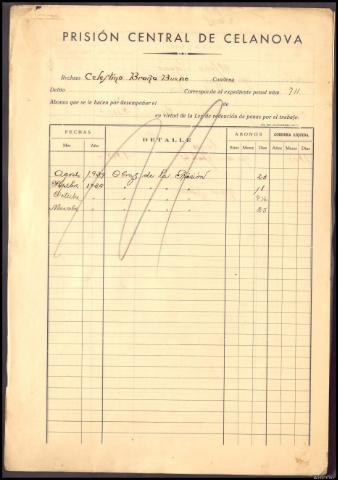 PRISIÓN CENTRAL DE CELANOVA
Recluso: Celestino Bueno Condena
Delito Corresponde al expediente penal núm. 711
Abonos que se le hacen por desempeñar el de
en virtud de la Ley de redención de penas por el trabajo.
FECHAS DETALLE ABONOS CONDENA LÍQUIDA
Mes Año Años Meses Días Años Meses Días
Agosto 1944 Obras de la Prisión
" " " 18
Octubre " " "
" " " 25